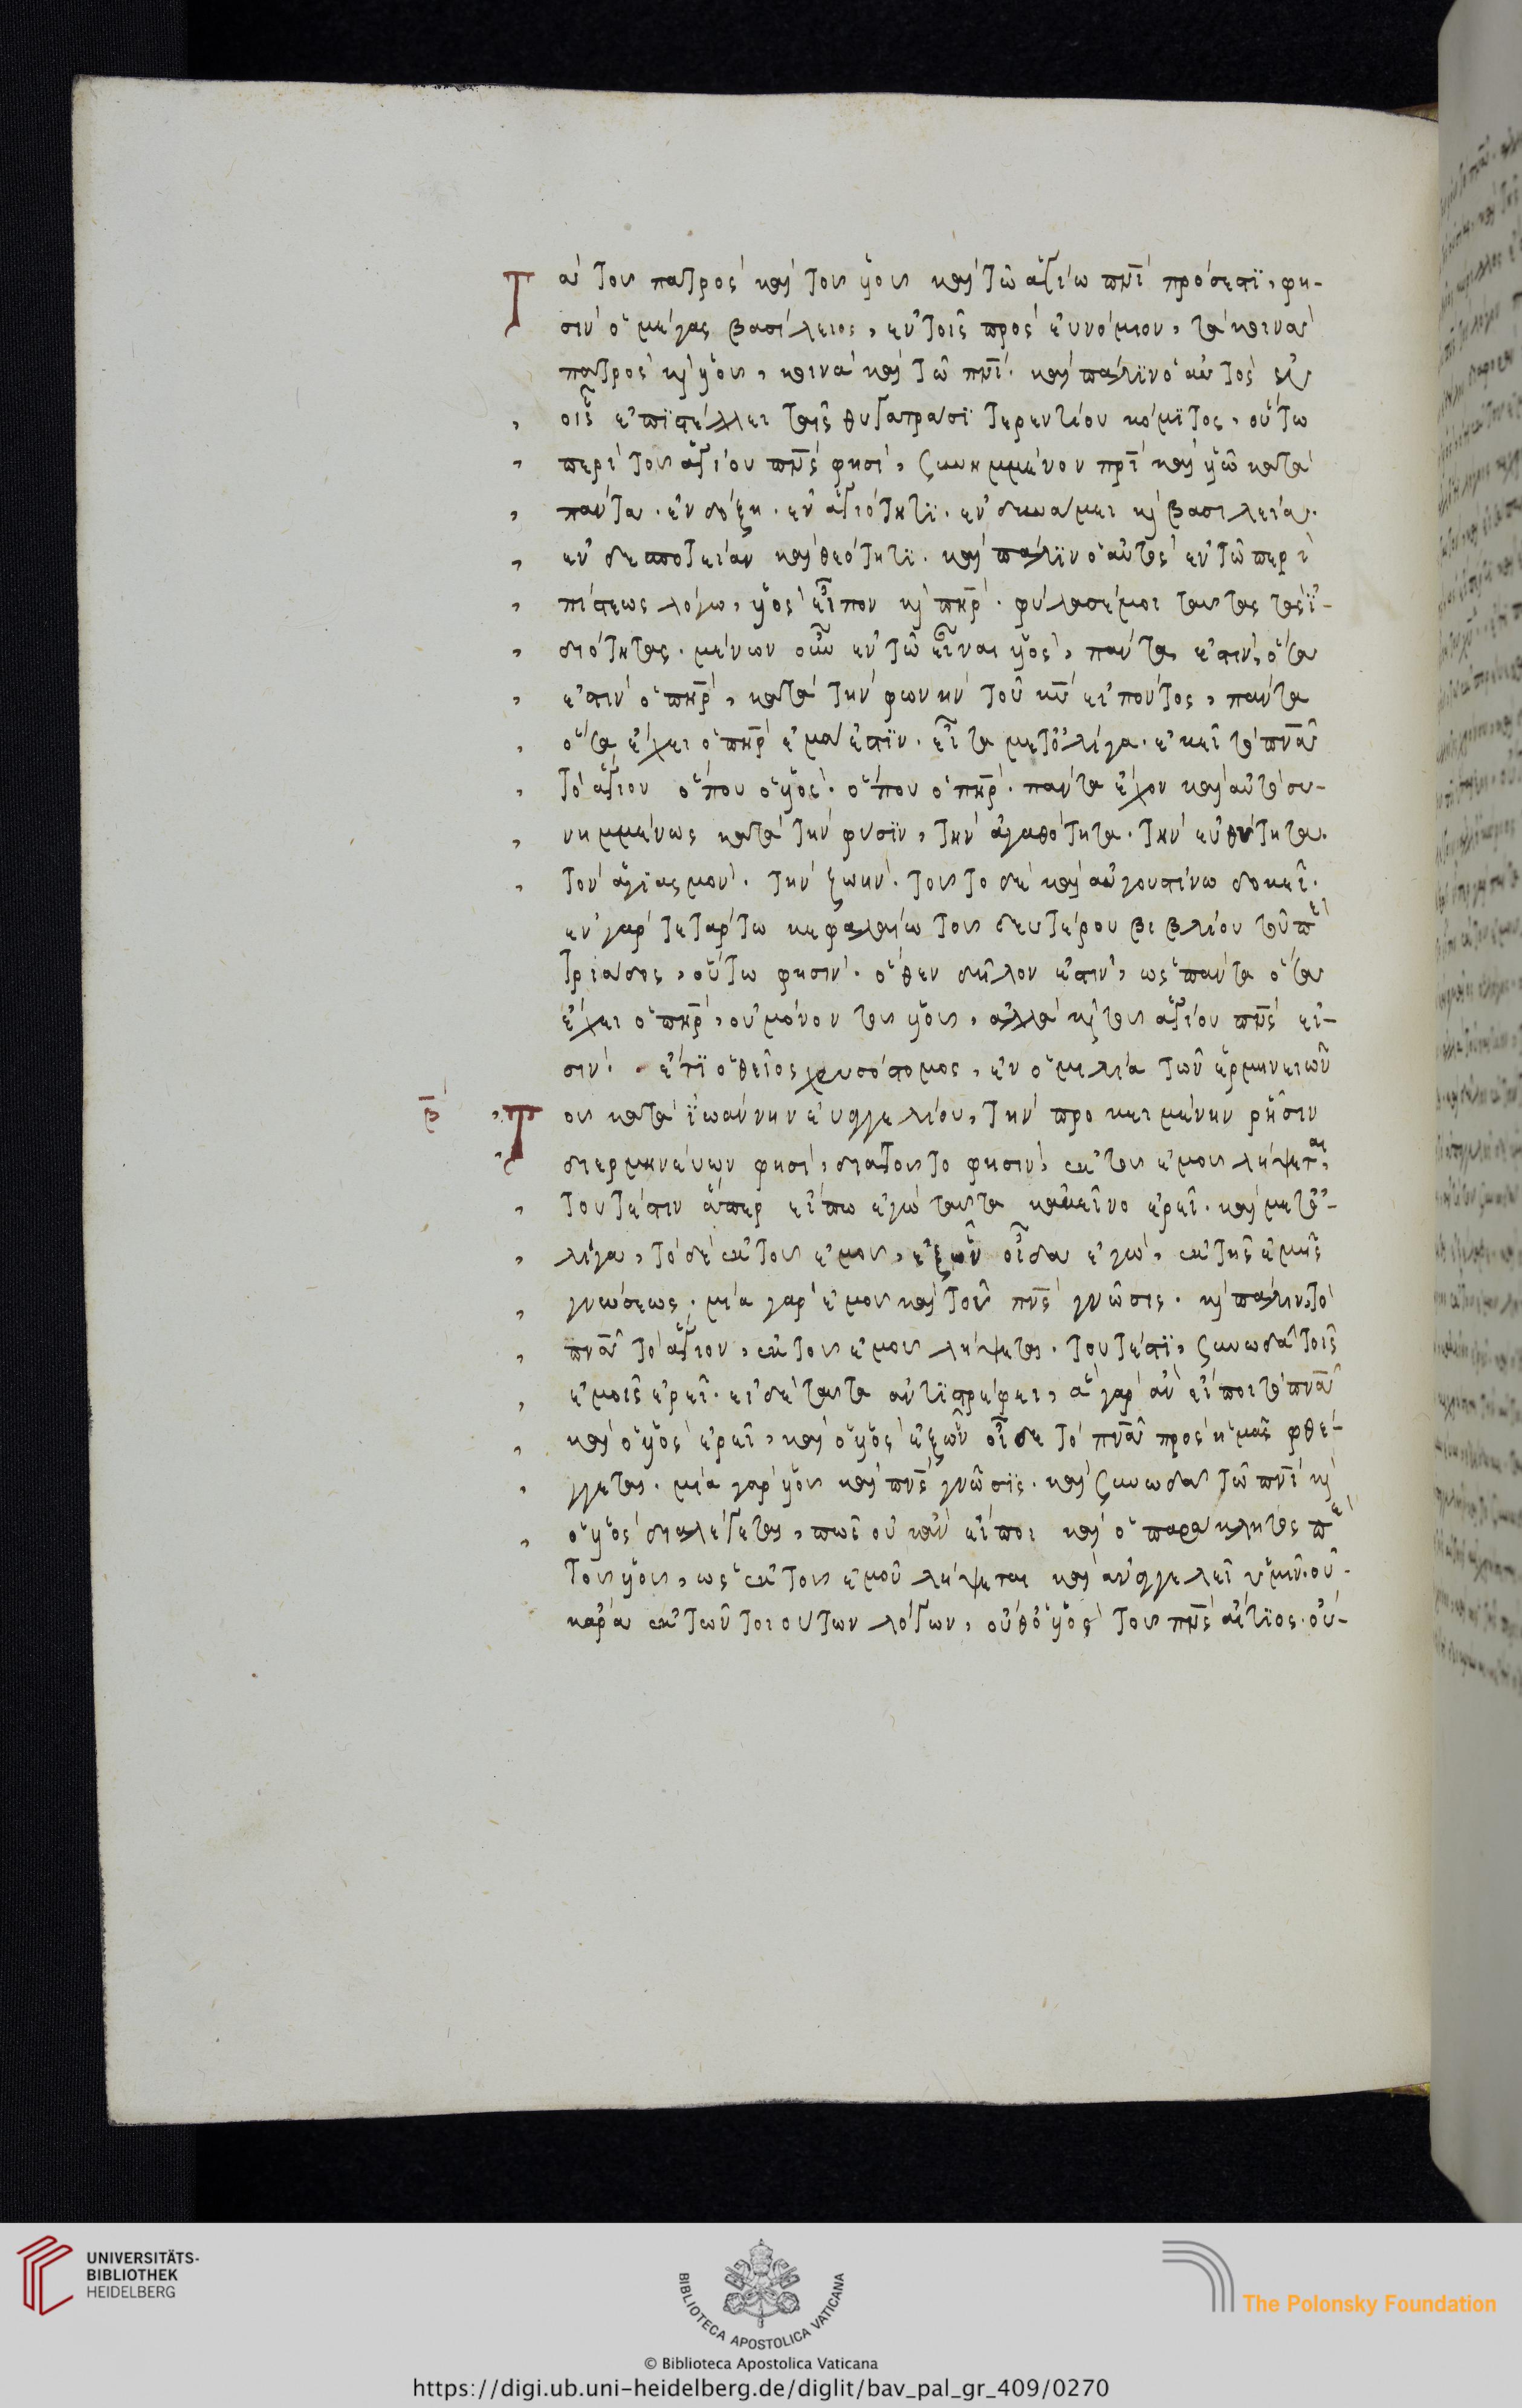 Τὰ τοῦ πατρὸς καὶ τοῦ υἱοῦ καὶ τῷ ἁγίω πνι πρόσεστι, φη-
σιν ὁ μέγας βασίλειος, ἐν τοῖς πρὸς εὐνόμιον, τὰ κοινὰ
πατρὸς κỳ υἱοῦ, κοινὰ καὶ τῷ πνι. καὶ πάλιν ὁ αὐτὸς ἐν
οἷς ἐπιστέλλει ταῖς θυγατράσι τερεντίου κόμιτος, οὕτω
περὶ τοῦ ἁγίου πνς φησὶ, συνημμένον πρι καὶ υἱῷ κατὰ
πάντα. ἐν δόξη. ἐν ἁγιότητι. ἐν δυνάμει κỳ βασιλεία.
ἐν δεσποτεία καὶ θεότητι. καὶ πάλιν ὁ αὐτὸς ἐν τῷ περὶ
πίστεως λόγω, υἱὸς εἶπον κỳ πηρ. φύλασέ μοι ταύτας τὰς ἰ-
διότητας. μένων οὖν ἐν τῷ εἶναι υἱὸς, πάντα ἐστὶν, ὅσα
ἐστὶν ὁ πηρ, κατὰ τὴν φωνὴν τοῦ κυ εἰπόντος, πάντα
ὅσα ἔχει ὁ πηρ ἐμά ἐστιν. εἶτα μετ' ὀλίγα. ἐκεῖ τὸ πνα
τὸ ἅγιον ὅπου ὁ υἱός. ὅπου ὁ πηρ. πάντα ἔχον καὶ αὐτὸ συ-
νημμένως κατὰ τὴν φύσιν, τὴν ἀγαθότητα. τὴν εὐθύτητα.
τὸν ἁγιασμὸν. τὴν ζωὴν. τοῦτο δὲ καὶ αὐγουστίνω δοκεῖ.
ἐν γὰρ τετάρτω κεφαλαίω τοῦ δευτέρου βιβλίου τοῦ πε
τριάδος, οὕτω φησίν. ὅθεν δῆλον ἐστὶν, ὡς πάντα ὅσα
ἔχει ὁ πηρ, οὐ μόνον τοῦ υἱοῦ, ἀλλὰ κỳ τοῦ ἁγίου πνς εἰ-
σιν. ἔτι ὁ θεῖος χρυσόστομος, ἐν ὁμιλία τῶν ἑρμηνειῶν
β Τοῦ κατὰ ἰωάννην εὐαγγελίου, τὴν προκειμένην ῥῆσιν
διερμηνεύων φησὶ, διατοῦτο φησιν, ἐκ τοῦ ἐμοῦ λήψεται,
τουτέστιν ἅπερ εἴπω ἐγὼ ταῦτα κακεῖνο ἐρεῖ. καὶ μετ' ὀ-
λίγα, τὸ δὲ ἐκ τοῦ ἐμοῦ, ἐξ ὧν οἶδα ἐγὼ, ἐκ τῆς ἐμῆς
γνώσεως. μία γὰρ ἐμοῦ καὶ τοῦ πνς γνῶσις. κỳ πάλιν, τὸ
πνα τὸ ἅγιον, ἐκ τοῦ ἐμοῦ λήψεται. τουτέστι, συνωδὰ τοῖς
ἐμοῖς ἐρεῖ. εἰ δὲ ταῦτα ἀντιστρέφει, ἃ γὰρ ἂν εἴποι τὸ πνα
καὶ ὁ υἱὸς ἐρεῖ, καὶ ὁ υἱὸς ἐξ ὧν οἶδε τὸ πνα πρὸς ἡμᾶς φθέ-
γγεται. μία γὰρ υἱοῦ καὶ πνς γνῶσις. καὶ συνωδὰ τῷ πνι κỳ
ὁ υἱὸς διαλέγεται, πῶς οὐκ ἂν εἴποι καὶ ὁ παράκλητος πε
τοῦ υἱοῦ, ὡς ἐκ τοῦ ἐμοῦ λήψεται καὶ ἀναγγελεῖ ὑμῖν. οὐ-
κάρα ἐκ τῶν τοιούτων λόγων, οὔθ' ὁ υἱὸς τοῦ πνς αἴτιος. οὐ-
UNIVERSITÄTS-
BIBLIOTHEK
HEIDELBERG
BIBLIOTECA APOSTOLICA VATICANA
The Polonsky Foundation
© Biblioteca Apostolica Vaticana
https://digi.ub.uni-heidelberg.de/diglit/bav_pal_gr_409/0270